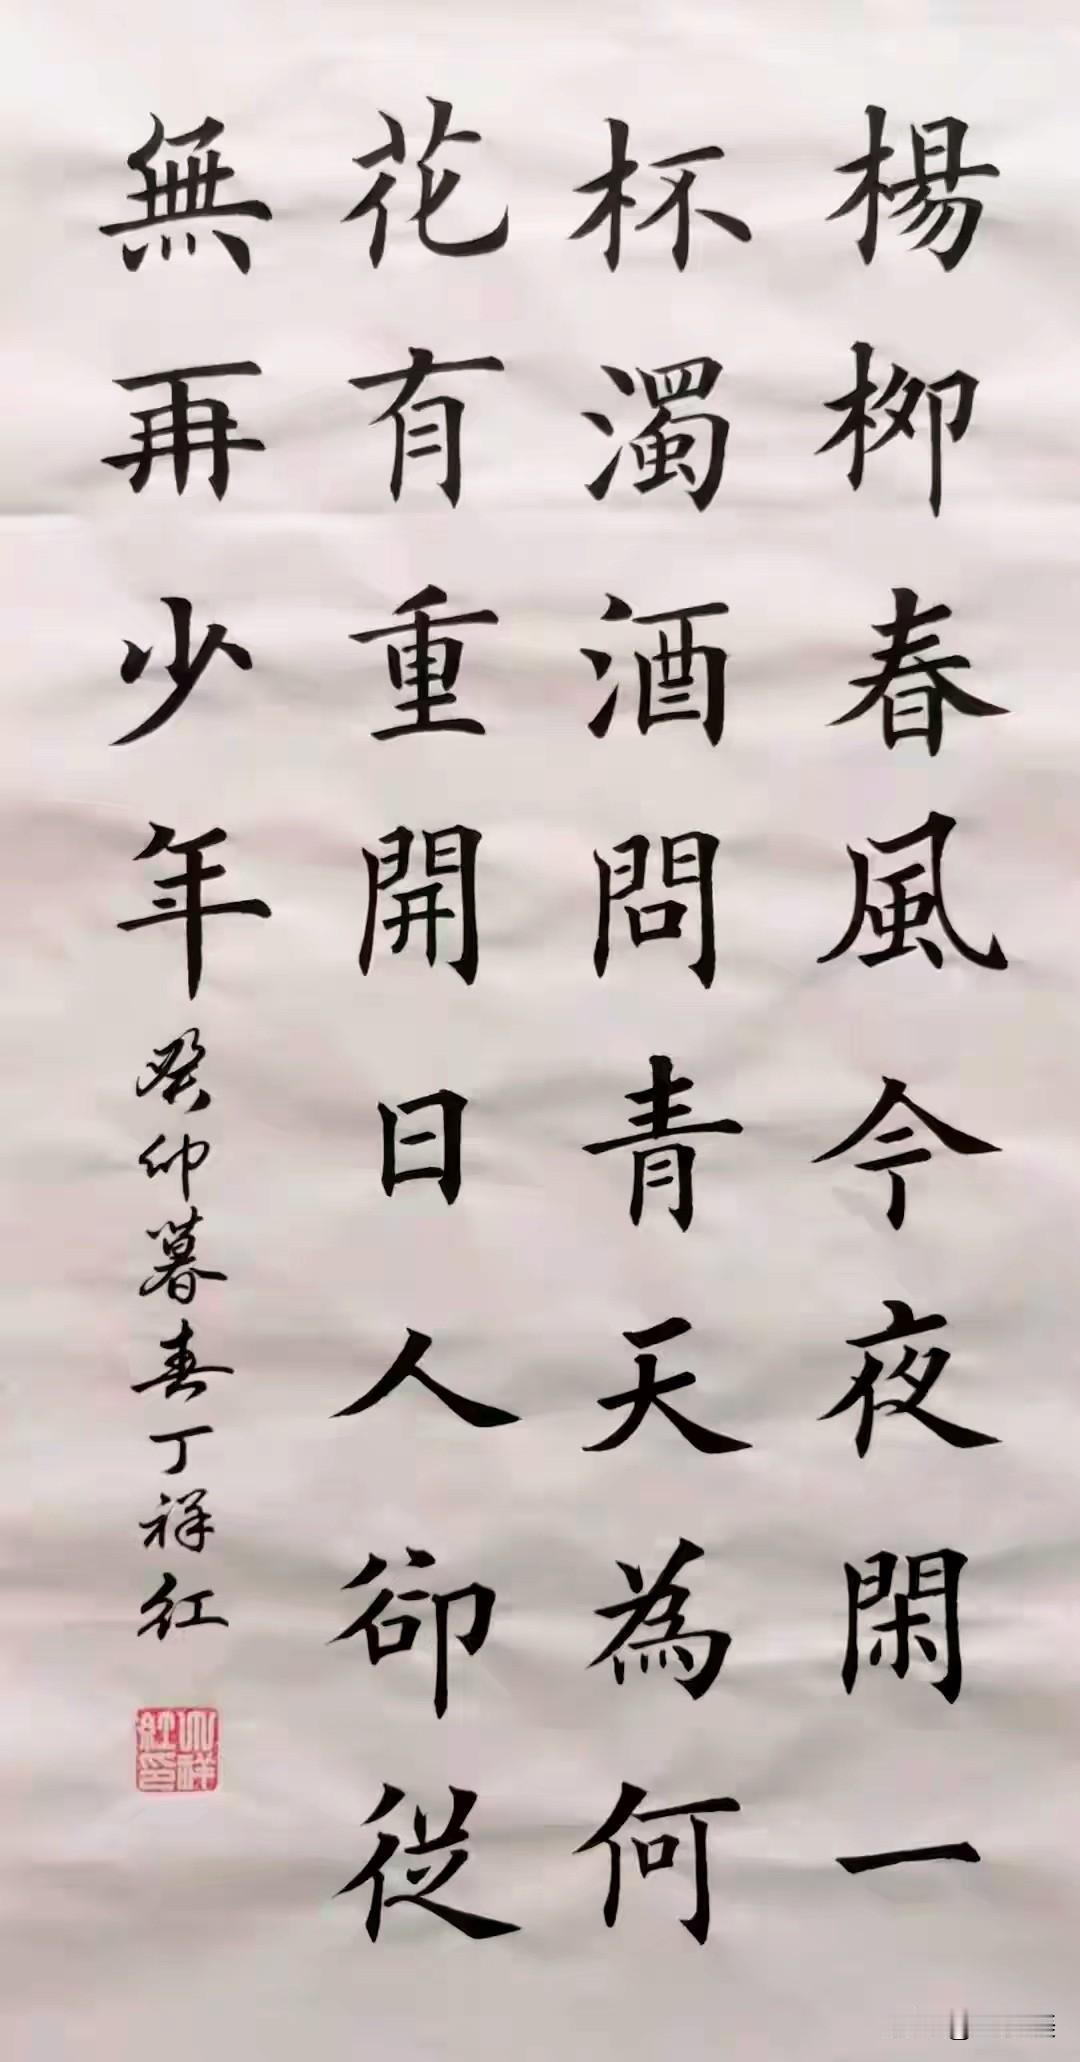 楊柳春風今夜閑一
杯濁酒問青天為何
花有重開日人卻從
無再少年
癸卯暮春丁祥红
丁祥红印